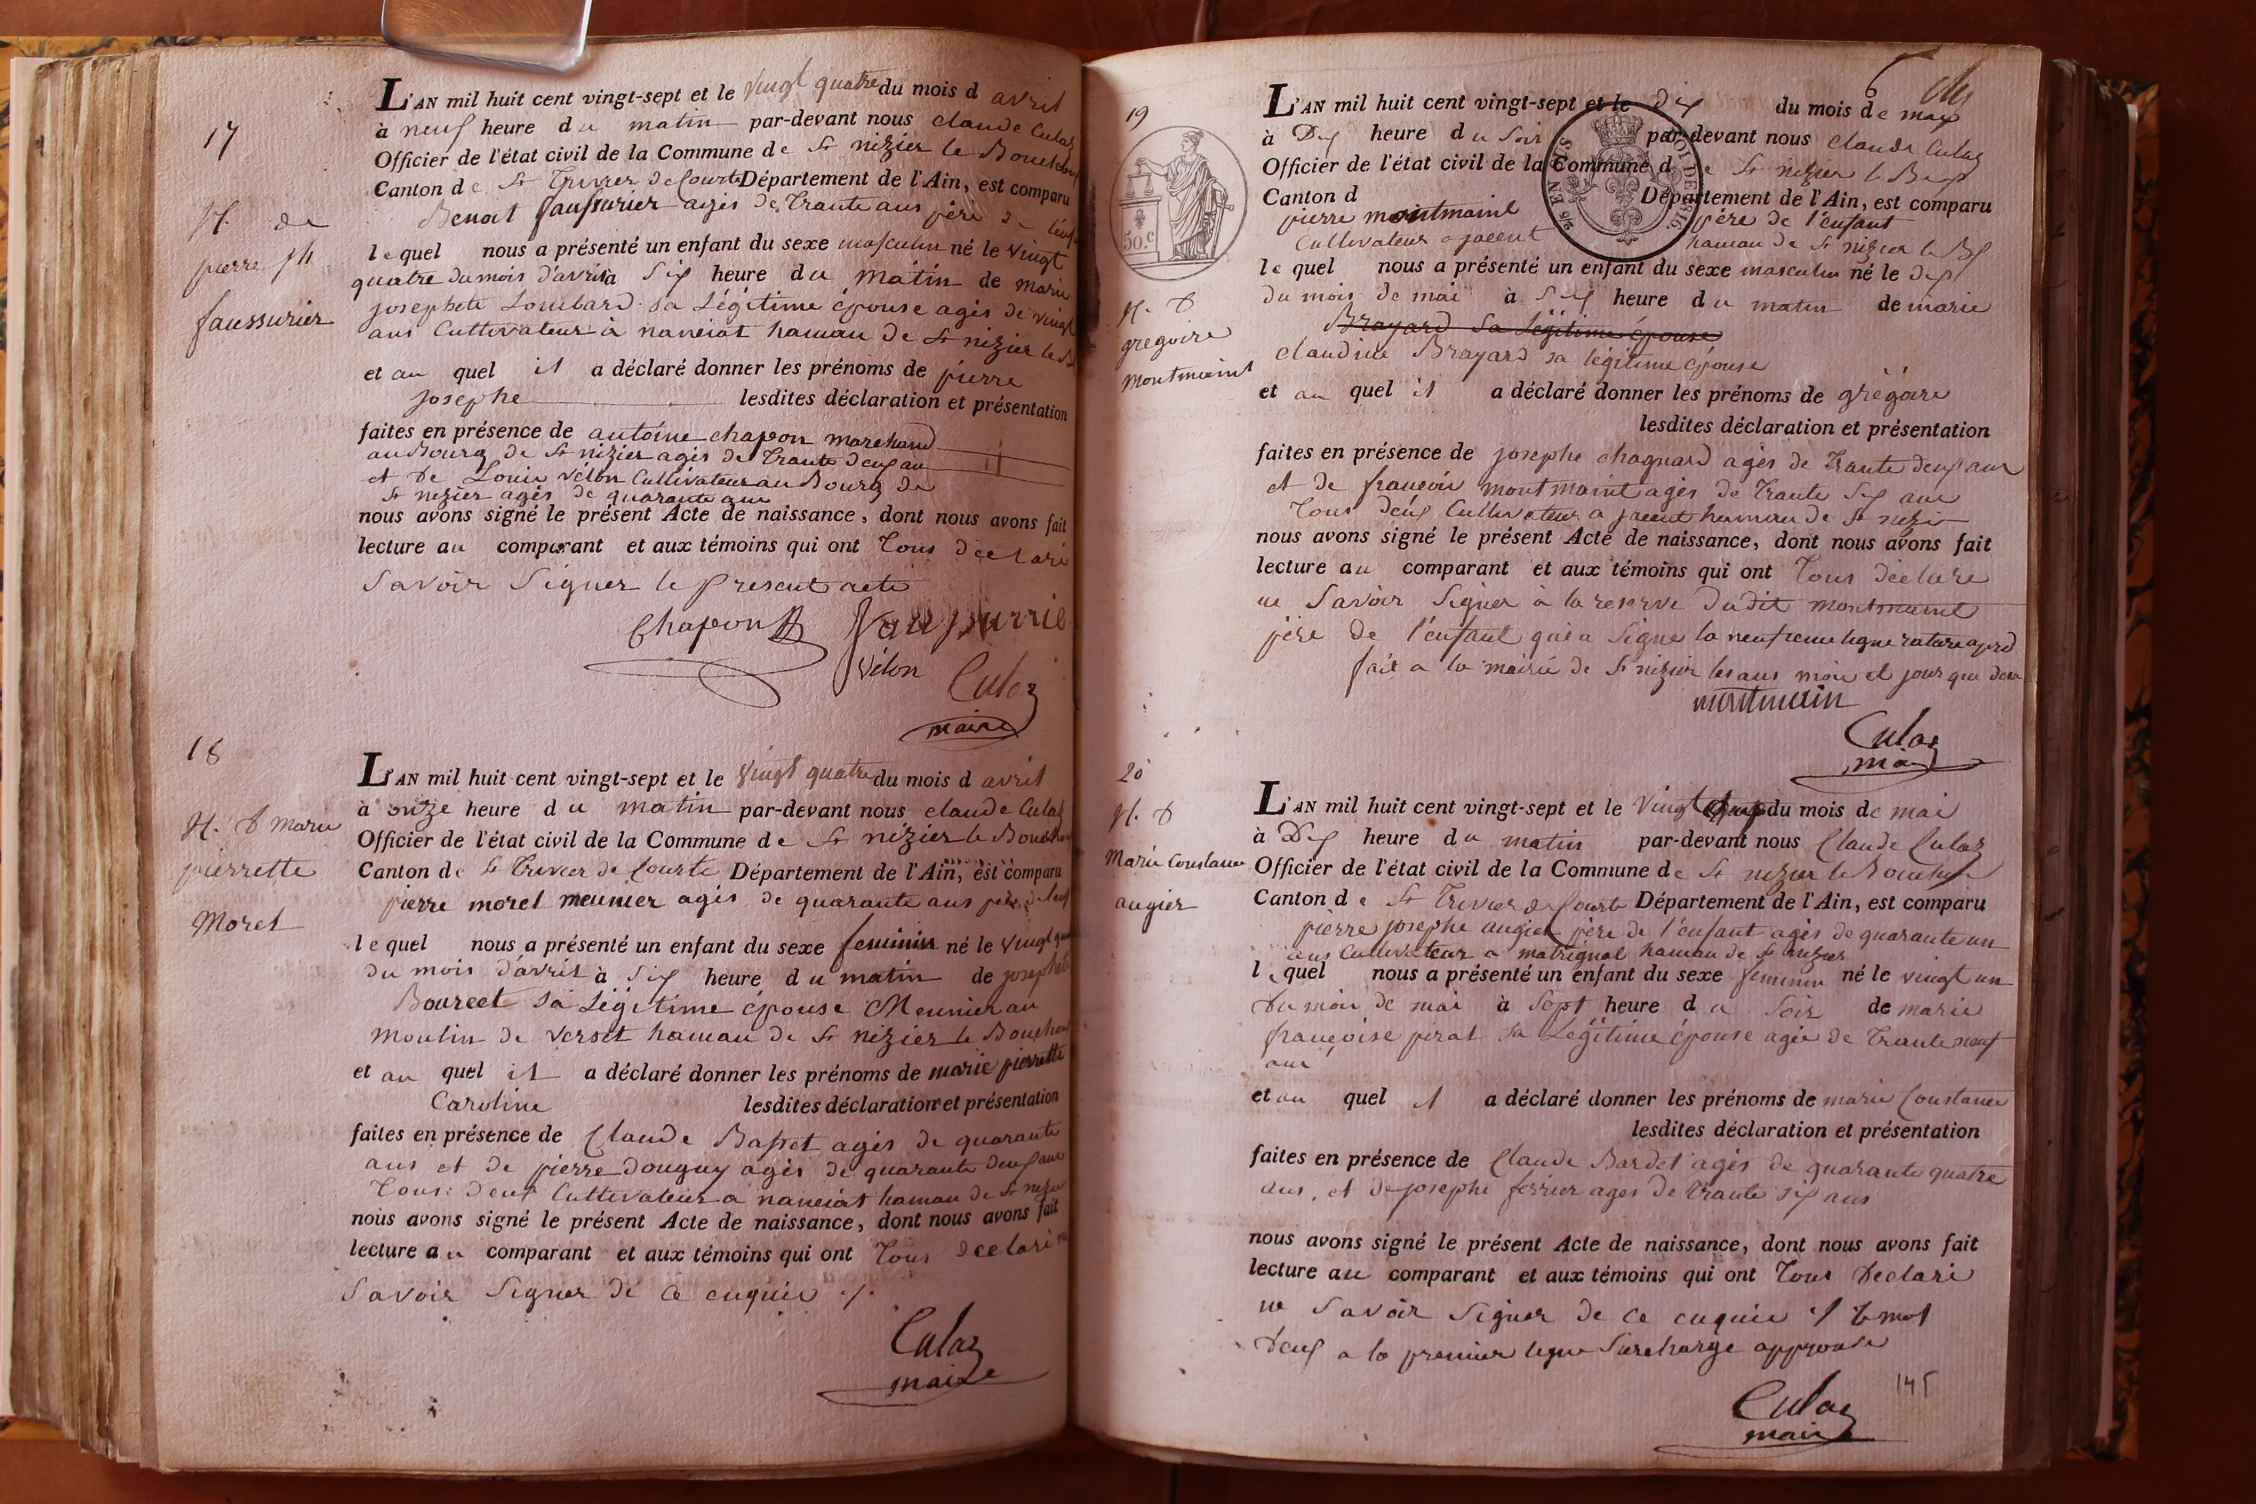 17
N. de
pierre jh
faussurier
L'AN mil huit cent vingt-sept et le vingt quatre du mois d avril
à neuf heure du matin par-devant nous claude Culaz
Officier de l'état civil de la Commune de St nizier le Bouchoux
Canton de St Trivier de Courte Département de l'Ain, est comparu
Benoit faussurier agés de trante ans père de
lequel nous a présenté un enfant du sexe masculin né le vingt
quatre du mois d'avril à Six heure du matin de marie
josephete Loubard sa Légitime épouse agés de vingt
ans Cultivateur à naneiat hamau de St nizier le B
et au quel il a déclaré donner les prénoms de pierre
josephe lesdites déclaration et présentation
faites en présence de antoine chapon marchand
au Bourg de St nizier agés de trante deux an
et De Louis Vélon Cultivateur au Bourg de
St nizier agés de quarante ans
nous avons signé le présent Acte de naissance, dont nous avons fait
lecture au comparant et aux témoins qui ont Tous déclaré
Savoir Signer le present acte
Chapon
Vélon
Culaz
maire
18
N. D marie
pierrette
Morel
L'AN mil huit cent vingt-sept et le vingt quatre du mois d avril
à onze heure du matin par-devant nous claude Culaz
Officier de l'état civil de la Commune de St nizier le Bouchoux
Canton de St Trivier de Courte Département de l'Ain, est comparu
pierre morel meunier agés de quarante ans père de
lequel nous a présenté un enfant du sexe feminin né le vingt
du mois d'avril à Six heure du matin de josephete
Bourcet sa Légitime épouse Meunier au
moulin de verset hamau de St nizier le Bouchoux
et au quel il a déclaré donner les prénoms de marie pierrette
Caroline lesdites déclaration et présentation
faites en présence de Claude Basset agés de quarante
ans et de pierre douguy agés de quarante deux ans
Tous deux Cultivateur a naneiat hamau de St nizier
nous avons signé le présent Acte de naissance, dont nous avons fait
lecture au comparant et aux témoins qui ont Tous declaré ne
Savoir Signer de ce enquie ./.
Culaz
maire
6
19
50.c
N. D
gregoire
montmaint
L'AN mil huit cent vingt-sept et le Dix du mois de may
à Dix heure du Soir par-devant nous claude Culaz
Officier de l'état civil de la Commune de St nizier le Boux
Canton d Département de l'Ain, est comparu
pierre montmaint père de l'enfant
Cultivateur a jacent hamau de St nizier le Bx
lequel nous a présenté un enfant du sexe masculin né le dix
du mois de mai à Six heure du matin de marie
Brayard sa Légitime épouse
claudine Brayard sa légitime épouse
et au quel il a déclaré donner les prénoms de grégoire
lesdites déclaration et présentation
faites en présence de josephe chagnard agés de trante deux ans
et de francois montmaint agés de trante Six ans
Tous deux Cultivateur a jacent hamau de St nizi
nous avons signé le présent Acte de naissance, dont nous avons fait
lecture au comparant et aux témoins qui ont Tous declare
ne Savoir Signer à la reserve dudit montmaint
père de l'enfant qui a Signé la neufieme ligne rature aprd
fait a la mairie de St nizier les ans mois et jour que dessu
montmain
Culaz
mai
20
N. D
Marie Constance
augier
L'AN mil huit cent vingt-sept et le Vingt deux du mois de mai
à Dix heure du matin par-devant nous Claude Culaz
Officier de l'état civil de la Commune de St nizier le Bouchoux
Canton de St Trivier de Courte Département de l'Ain, est comparu
pierre josephe augier père de l'enfant agés de quarante un
ans Cultivateur a matrignal hamau de St nizier
lequel nous a présenté un enfant du sexe feminin né le vingt un
du mois de mai à Sept heure du Soir de marie
françoise pirat sa Légitime épouse agée de trante neuf
ans
et au quel il a déclaré donner les prénoms de marie Constance
lesdites déclaration et présentation
faites en présence de Claude Bardet agés de quarante quatre
ans, et de josephe ferrier ages de trante six ans
nous avons signé le présent Acte de naissance, dont nous avons fait
lecture au comparant et aux témoins qui ont Tous Declaré
ne Savoir Signer de ce enquie / le mot
Deux a la premier ligne Surcharge approuvé
145
Culaz
maire